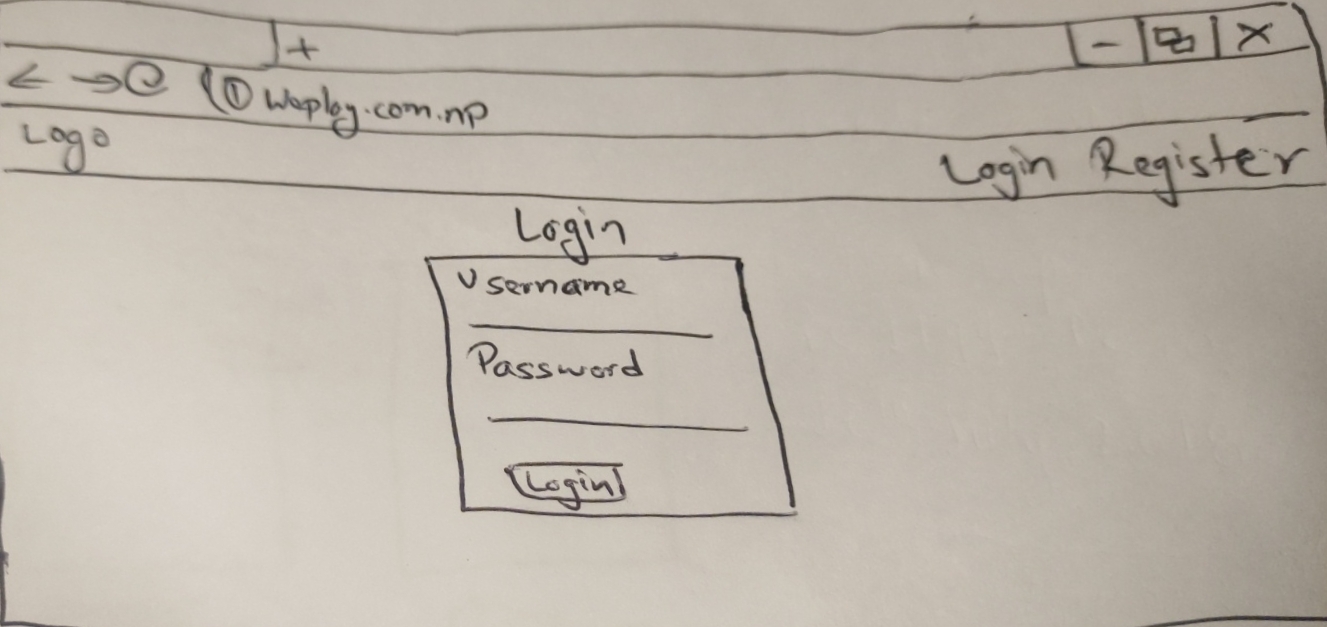 waplog.com.np
Logo
Login Register
Login
Username
Password
Login